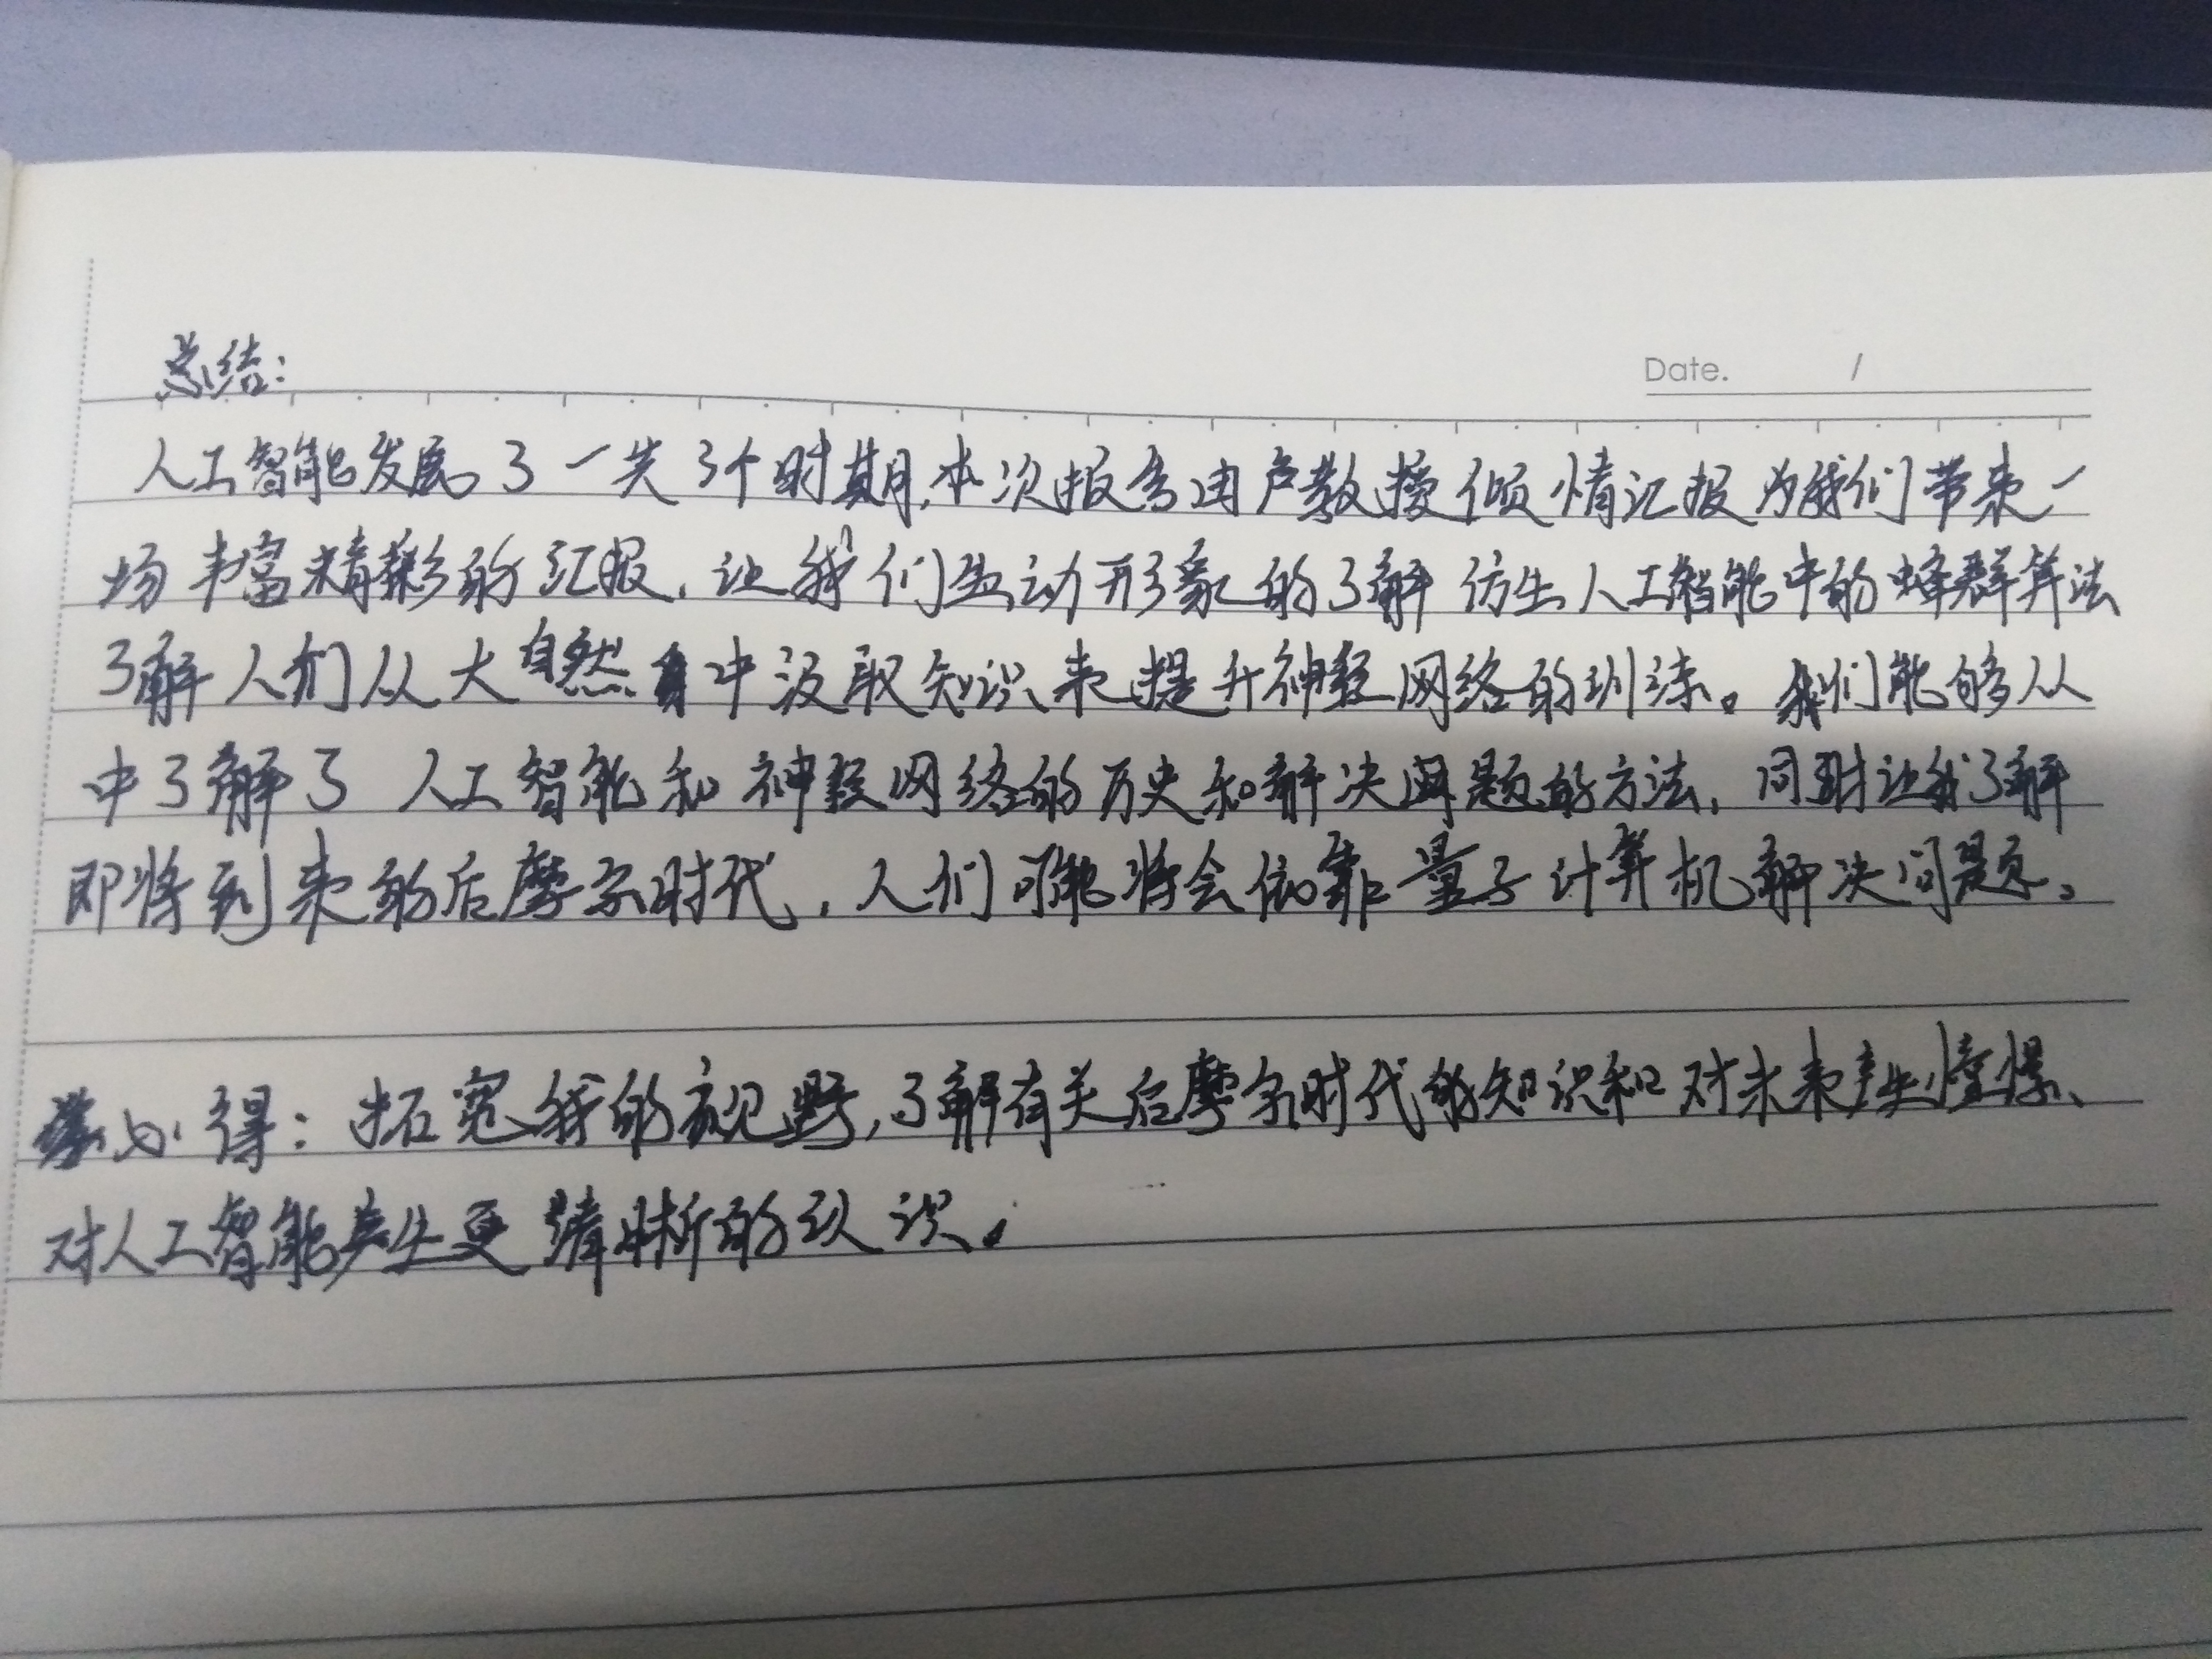 总结:
Date. /
人工智能发展了一共3个时期,本次报告由卢教授倾情汇报为我们带来一
场丰富精彩的汇报,让我们生动形象的了解仿生人工智能中的蜂群算法
了解人们从大自然中汲取知识来提升神经网络的训练。我们能够从
中了解了人工智能和神经网络的历史和解决问题的方法,同时让我了解
即将到来的后摩尔时代,人们可能将会依靠量子计算机解决问题。
心得:拓宽我的视野,了解有关后摩尔时代的知识和对未来产生憧憬、
对人工智能产生更清晰的认识。